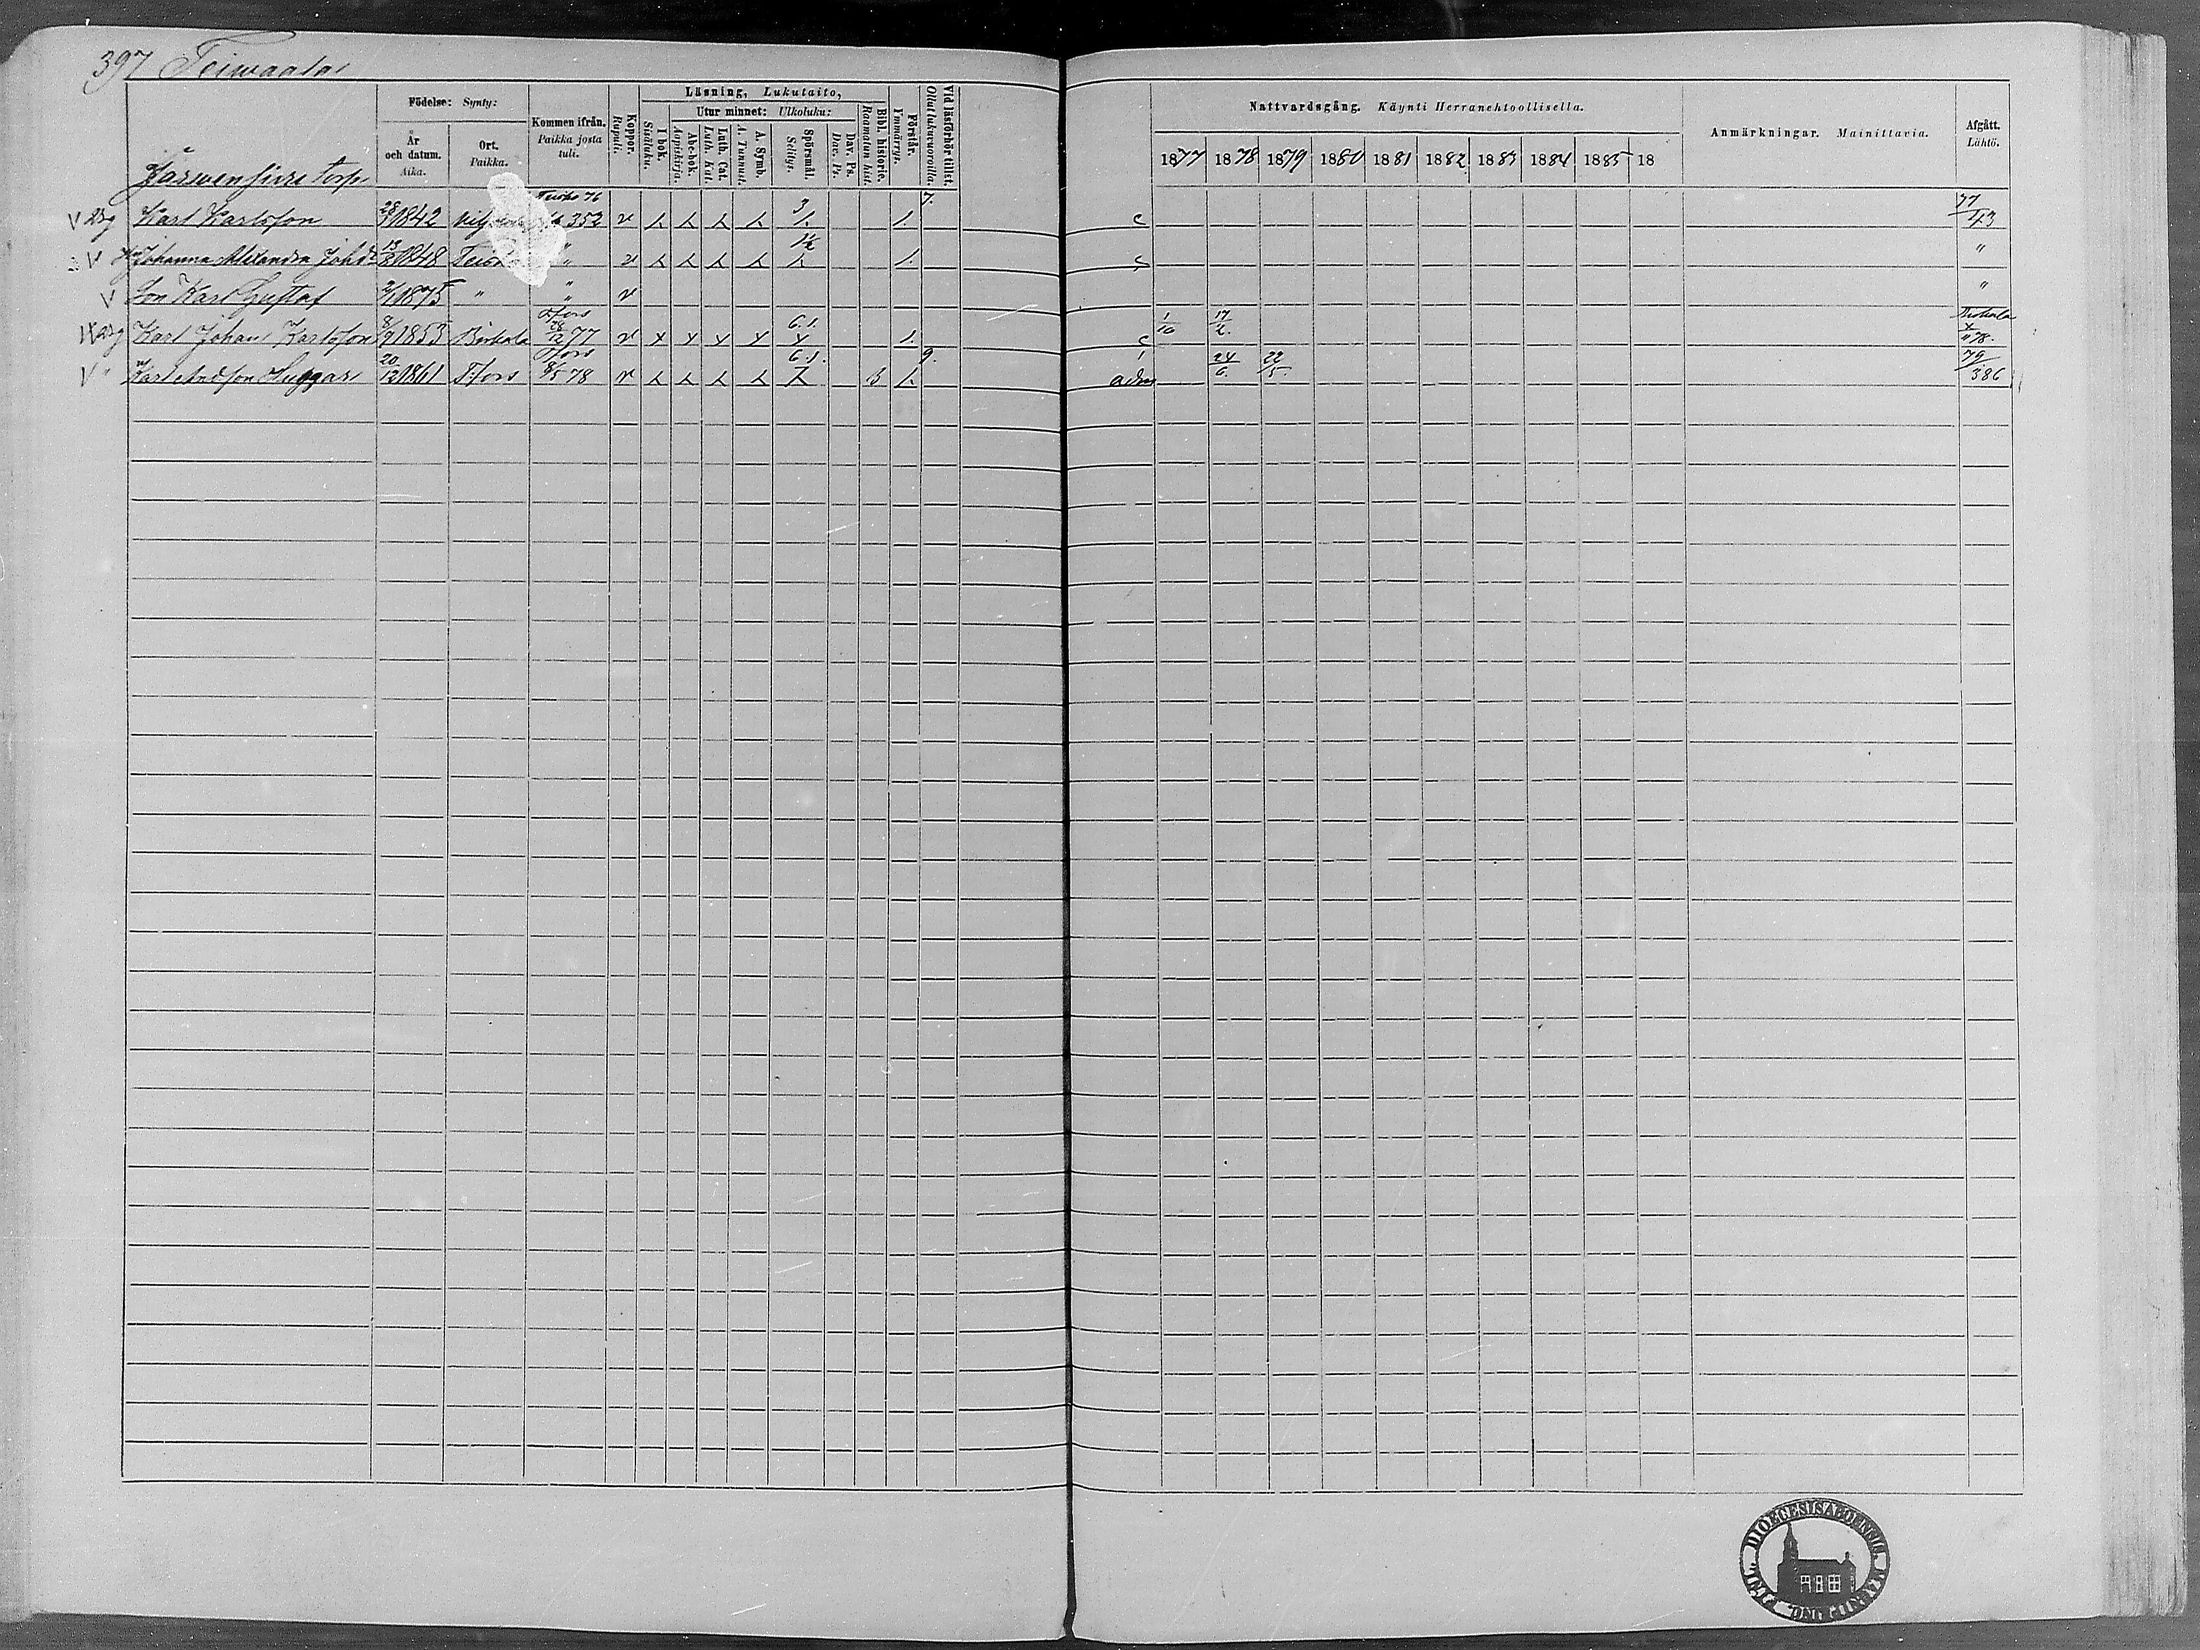 397 Teiwaala
Födelse: Synty:
År och datum. Aika.
Ort. Paikka.
Kommen ifrån. Paikka josta tuli.
Koppor. Rupuli.
Läsning, Lukutaito,
I bok. Sisäluku.
Utur minnet: Ulkoluku:
Abc-bok. Aapiskirja.
Luth. Cat. Luth. Kat.
A. Symb. A. Tunnust.
Spörsmål. Selitys.
Dav. Ps. Dav. Ps.
Bibl. historie. Raamatun hist.
Förstår. Ymmärrys.
Vid läsförhör tillst. Ollut lukuvuoroilla.
Nattvardsgång. Käynti Herranehtoollisella.
1877 1878 1879 1880 1881 1882 1883 1884 1885 18
Anmärkningar. Mainittavia.
Afgått. Lähtö.
Järwensivu torp
Karl Karlsson 28/ 1842 Teisko 76 352 v 3 1. 7. c 77/43
Johanna Alexandra Johd. 13/2 1848 Teisko " v 1. c "
Son Karl Gustaf 2/1 1875 " " v "
Karl Johan Karlsson 8/9 1853 Birkala T:fors 28/12 77 v 6.1. 1. c 1/10 17/2. 78.
Karl Andsson Huggar 20/12 1861 T:fors T:fors 8/5 78 v 6.1. 3 1. 9. adm 24/6. 22/5. 79/386
DIOECESIS ABOENSIS.